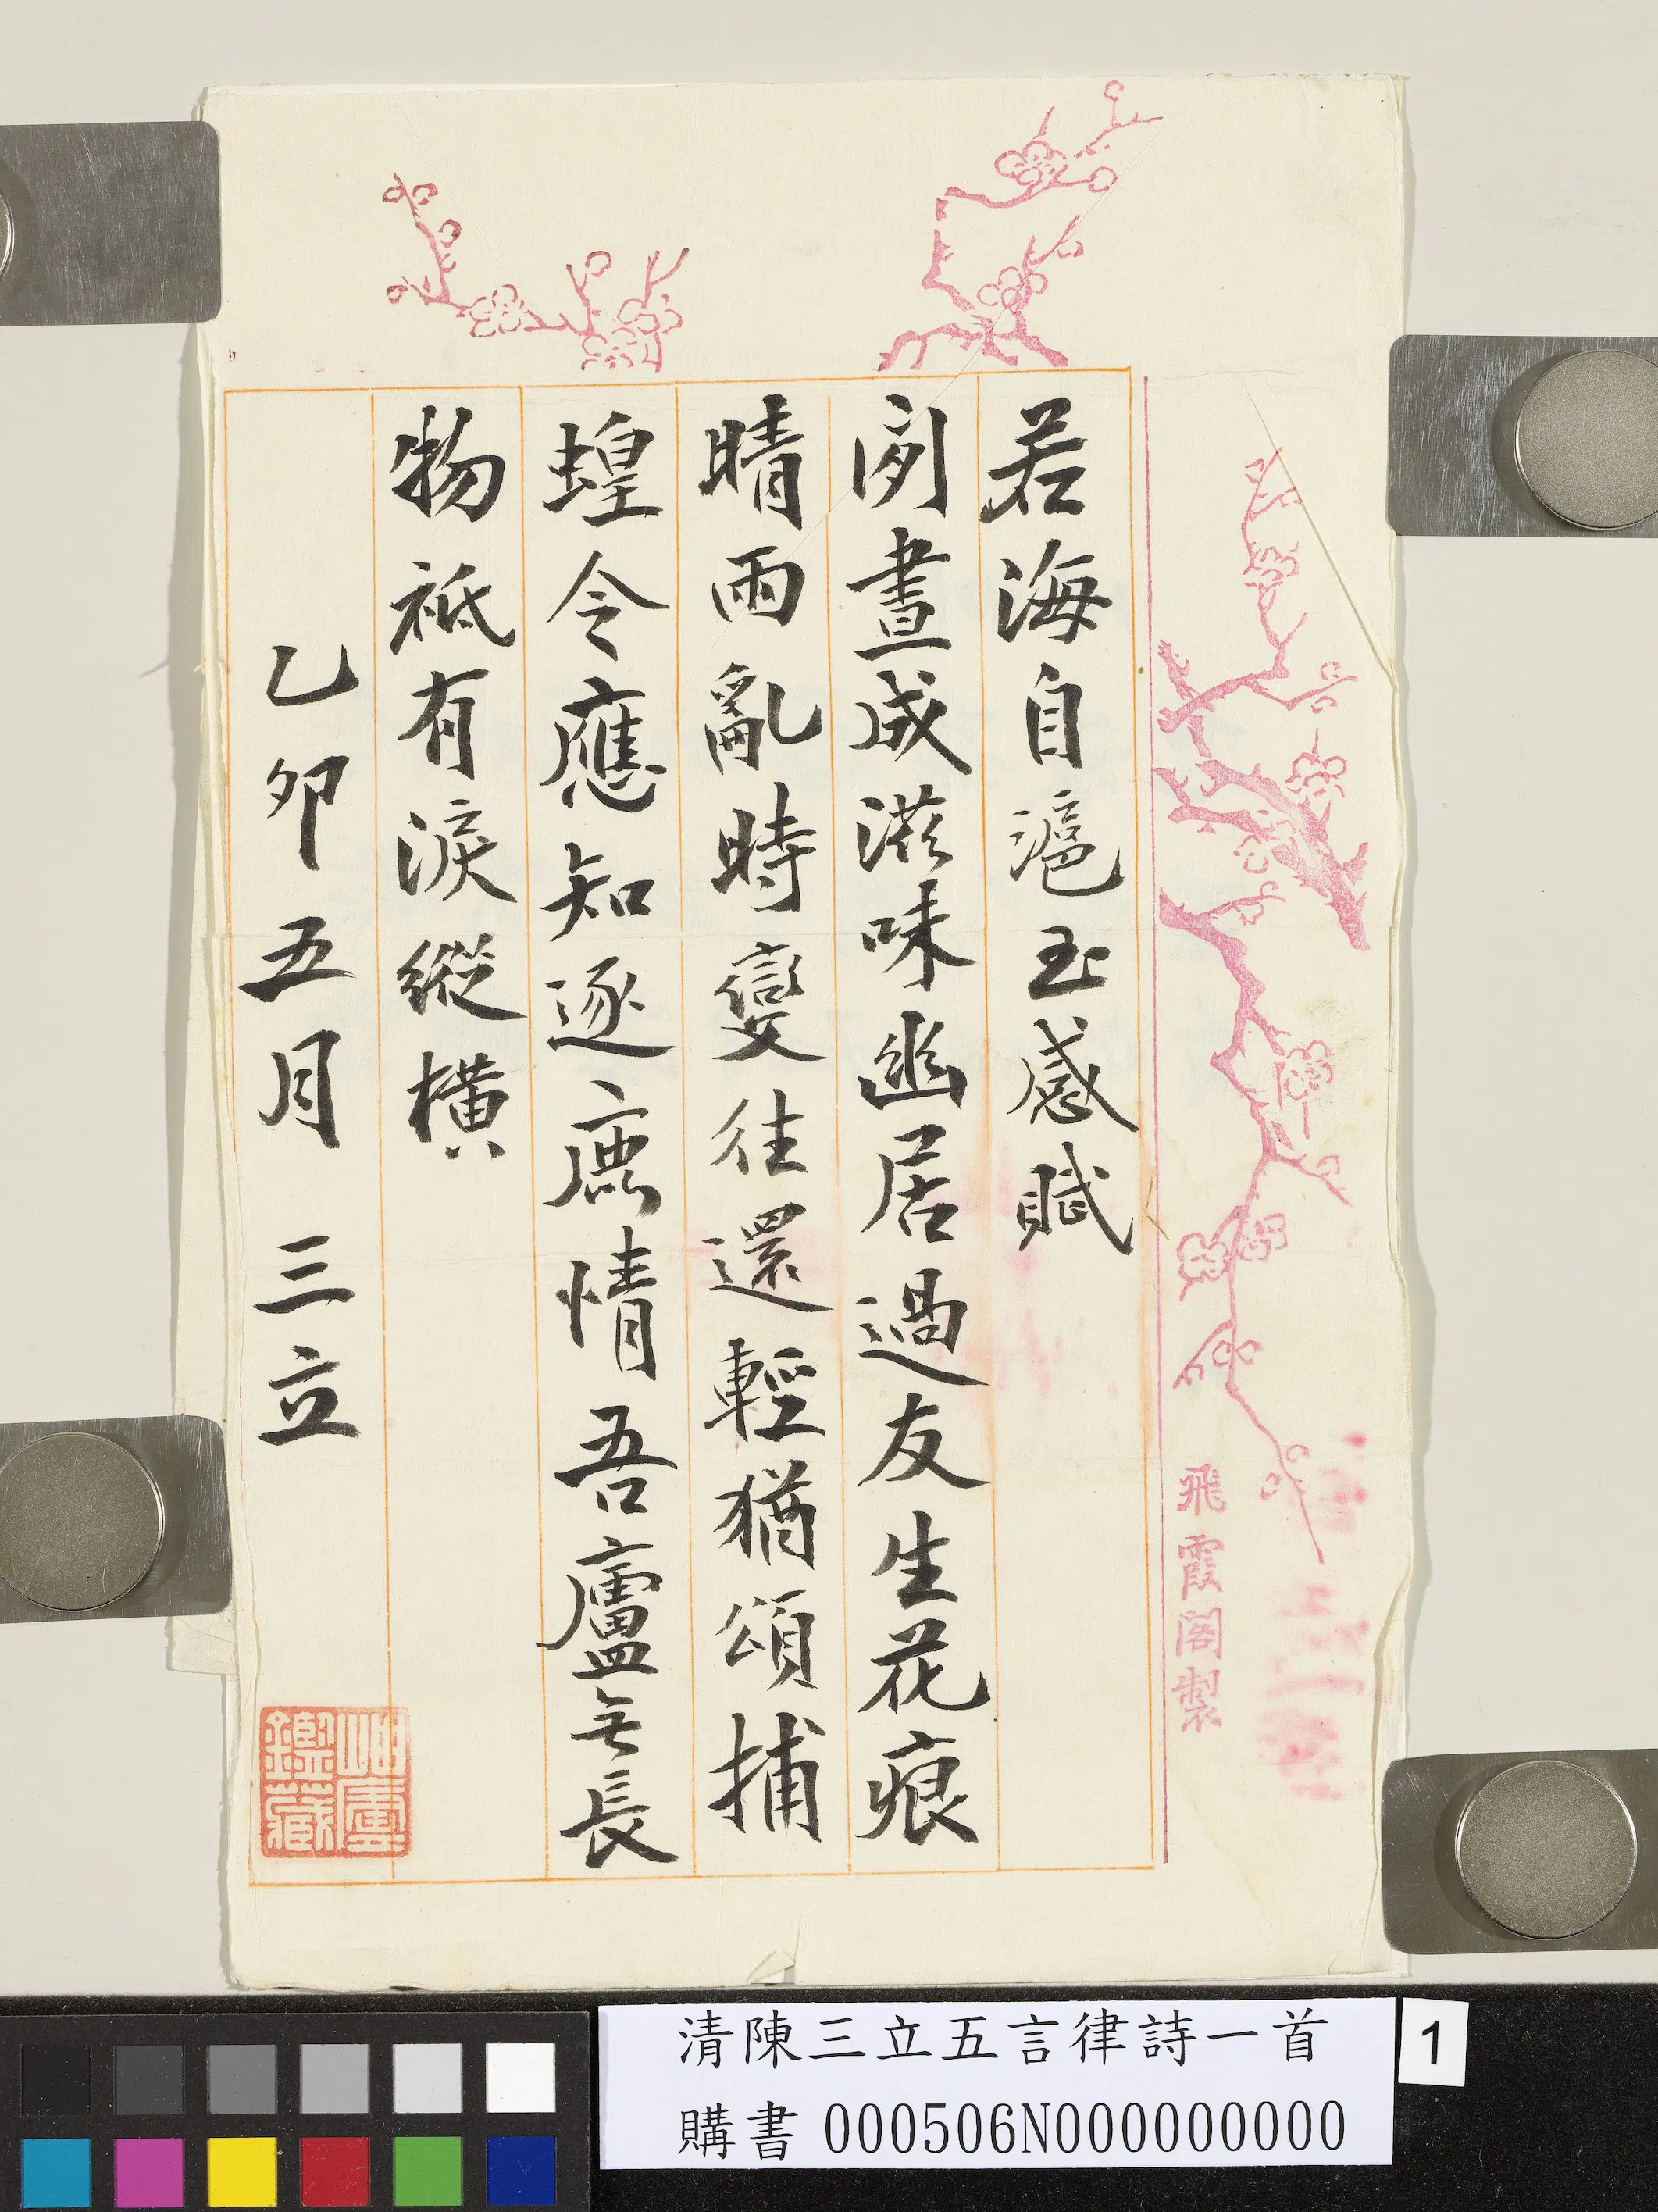 飛霞閣製
若海自滬至感賦
閒晝成滋味幽居過友生花痕
晴雨亂時變往還輕猶頌捕
蝗令應知逐鹿情吾廬無長
物祗有淚縱橫
乙卯五月三立
岫廬
鑑藏
清陳三立五言律詩一首
購書 000506N000000000
1